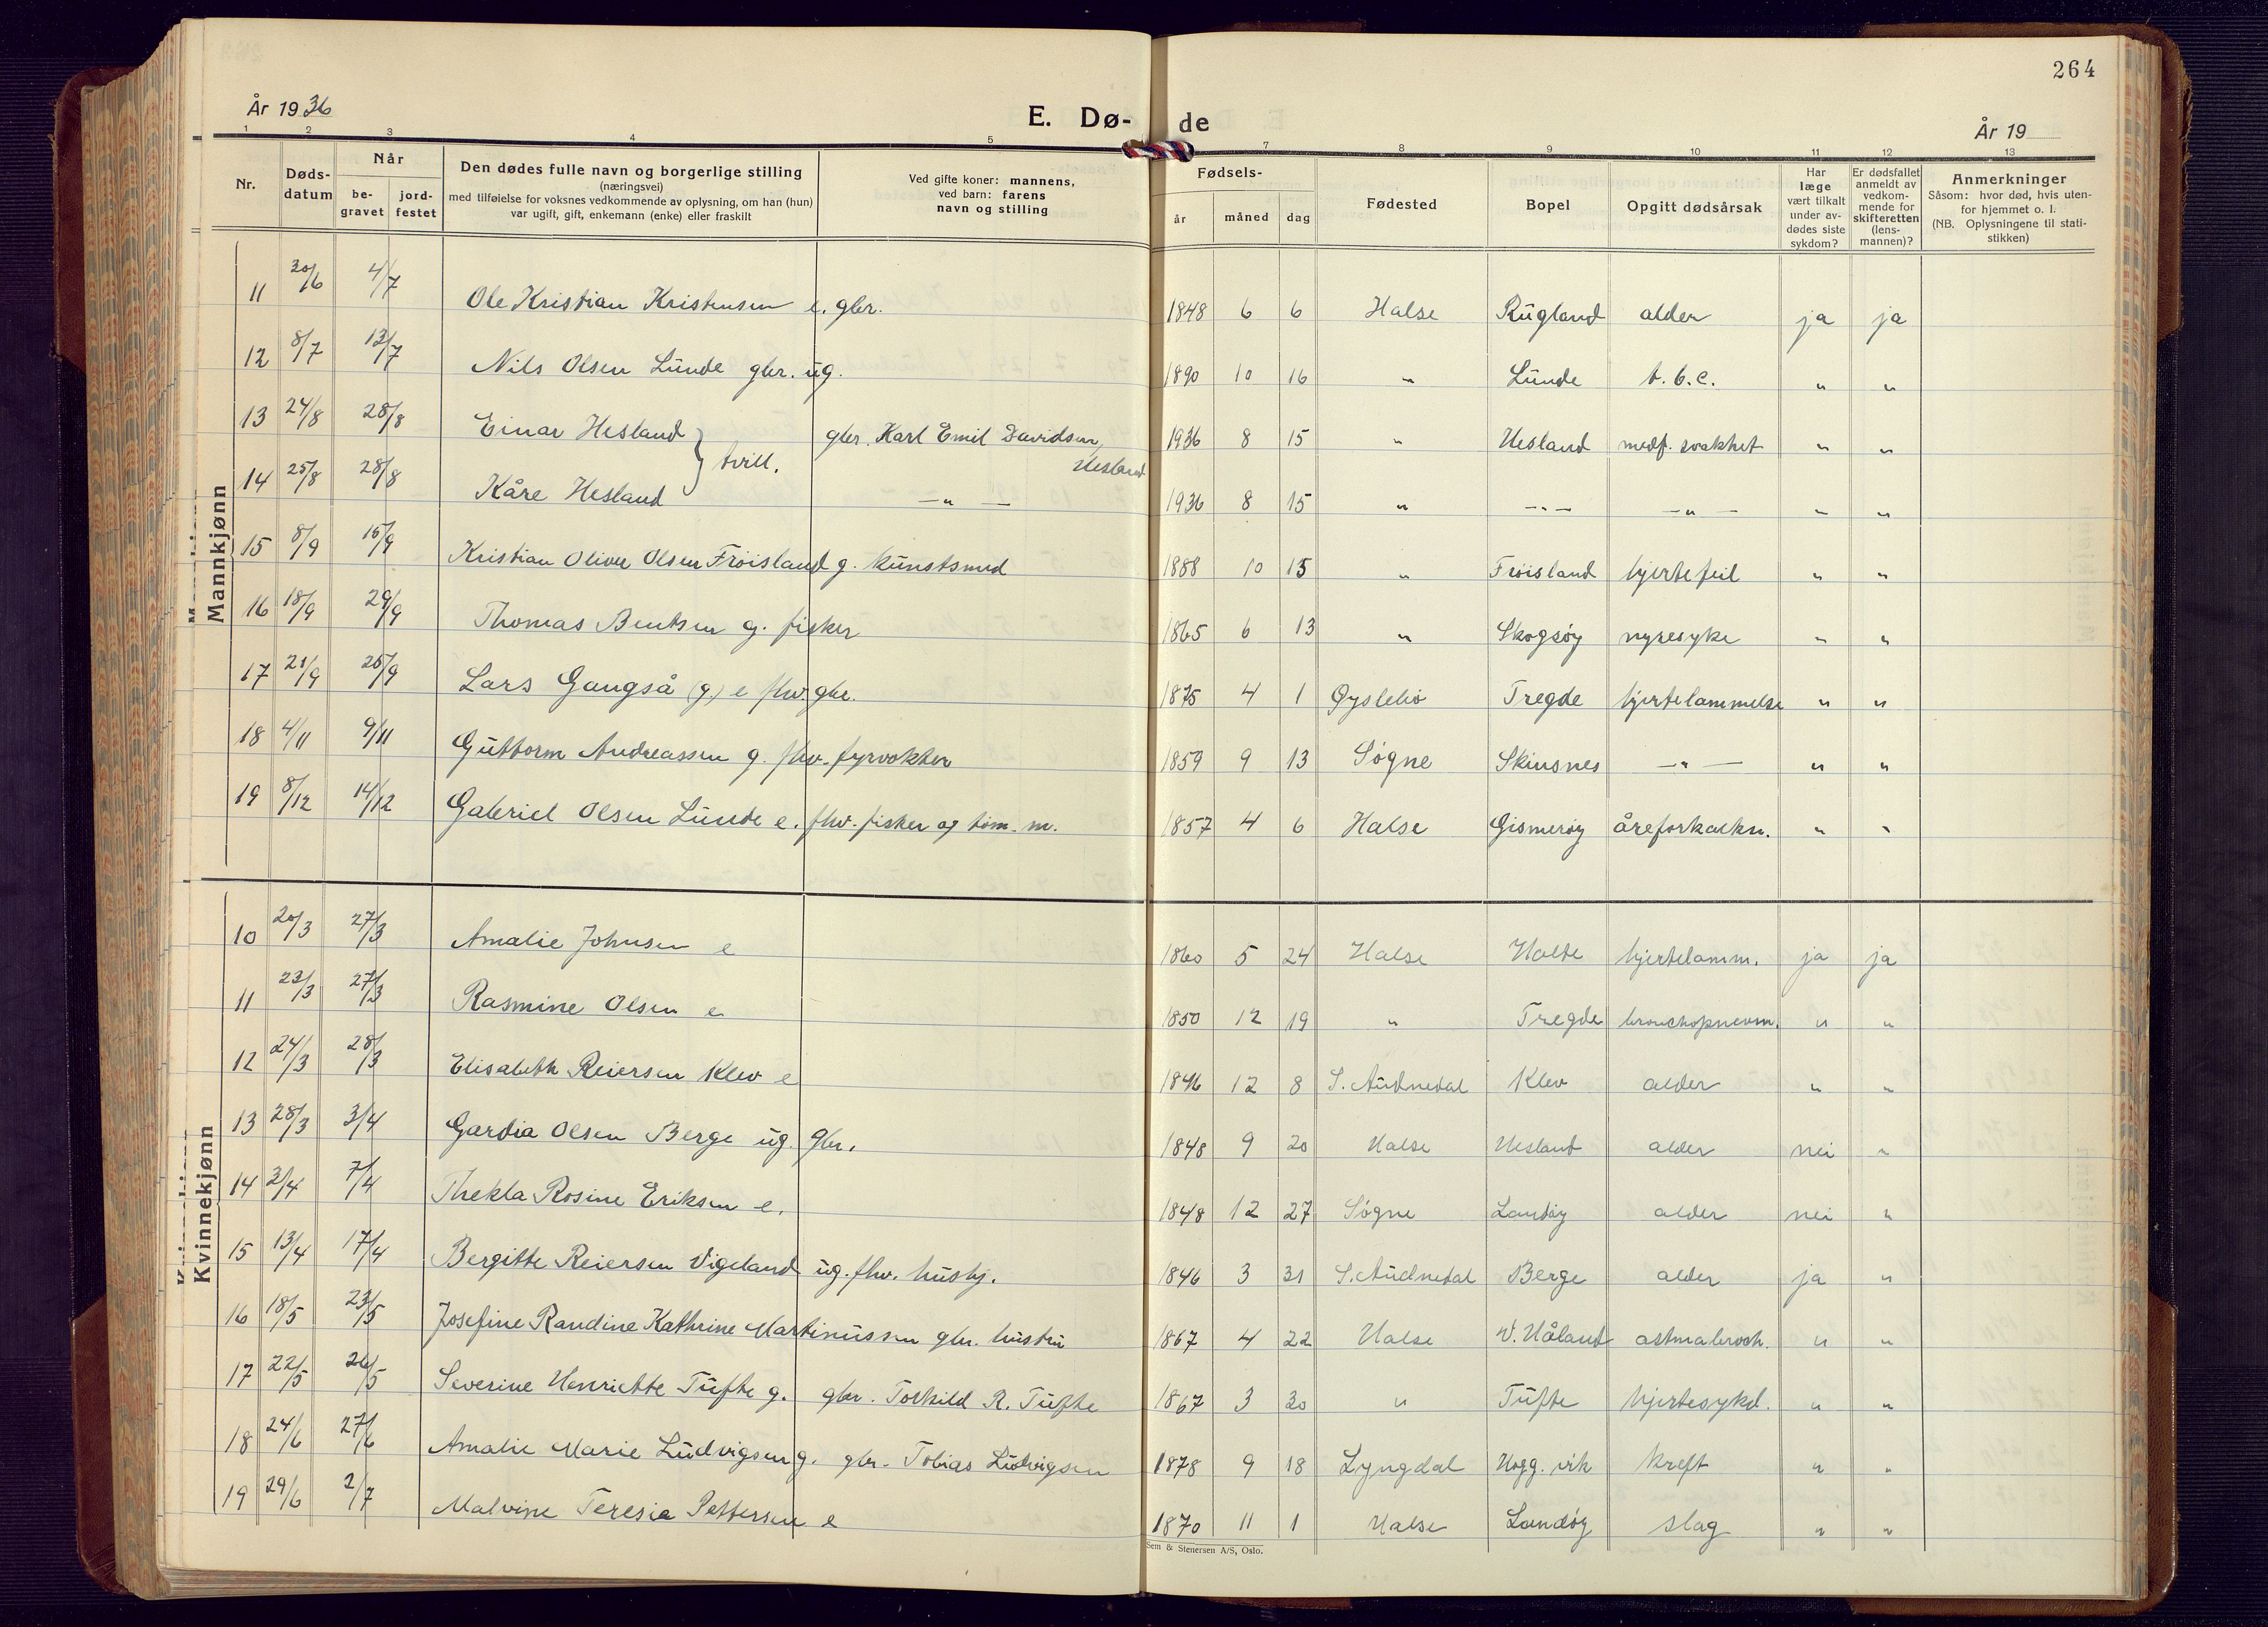 264
År 1936
E. Dø-
de
År 19
1 2 3 4 5 7 8 9 10 11 12 13
Nr.
Døds-
datum
Når
be-
gravet
jord-
festet
Den dødes fulle navn og borgerlige stilling
(næringsvei)
med tilføielse for voksnes vedkommende av oplysning, om han (hun)
var ugift, gift, enkemann (enke) eller fraskilt
Ved gifte koner: mannens,
ved barn: farens
navn og stilling
Fødsels-
år måned dag
Fødested
Bopel
Opgitt dødsårsak
Har
læge
vært tilkalt
under av-
dødes siste
sykdom?
Er dødsfallet
anmeldt av
vedkom-
mende for
skifteretten
(lens-
mannen)?
Anmerkninger
Såsom: hvor død, hvis uten-
for hjemmet o. l.
(NB. Oplysningene til stati-
stikken)
Mannkjønn
11 30/6 4/7 Ole Kristian Kristensen e. gbr. 1848 6 6 Halse Rugland alder ja ja
12 8/7 13/7 Nils Olsen Lunde gbr. ug. 1890 10 16 " Lunde t.b.c. " "
13 24/8 28/8 Einar Hesland } tvill. gbr. Karl Emil Davidsen, Hesland 1936 8 15 " Hesland medf. svakhet " "
14 25/8 28/8 Kåre Hesland — " — 1936 8 15 " — " — — " — " "
15 8/9 15/9 Kristian Oliver Olsen Frøisland g. kunstsmed 1888 10 15 " Frøisland hjertefeil " "
16 18/9 29/9 Thomas Bentsen g. fisker 1865 6 13 " Skogsøy nyresyke " "
17 21/9 25/9 Lars Gangså (g.) e fhv. gbr. 1875 4 1 Øyslebø Tregde hjertelammelse " "
18 4/11 9/11 Guttorm Andreassen g. fhv. fyrvokter 1859 9 13 Søgne Skinsnes — " — " "
19 8/12 14/12 Gabriel Olsen Lunde e. fhv. fisker og tøm. m. 1857 4 6 Halse Gismerøy åreforkalkn. " "
Kvinnekjønn
10 20/3 27/3 Amalie Johnsen e 1860 5 24 Halse Holte hjertelamm. ja ja
11 23/3 27/3 Rasmine Olsen e 1850 12 19 " Tregde bronchopneum. " "
12 24/3 28/3 Elisabeth Reiersen Klev e 1846 12 8 S. Audnedal Klev alder " "
13 28/3 3/4 Gardia Olsen Berge ug. gbr. 1848 9 20 Halse Hesland alder nei "
14 2/4 7/4 Thekla Rosine Eriksen e. 1848 12 27 Søgne Landøy alder nei "
15 13/4 17/4 Bergitte Reiersen Vigeland ug. fhv. hushj. 1846 3 31 S. Audnedal Berge alder ja "
16 18/5 23/5 Josefine Randine Kathrine Martinussen gbr. hustru 1867 4 22 Halse V. Håland astmabroch. " "
17 22/5 26/5 Severine Henriette Tufte g. gbr. Torkild R. Tufte 1867 3 30 " Tufte hjertesykd. " "
18 24/6 27/6 Amalie Marie Ludvigsen g. gbr. Tobias Ludvigsen 1878 9 18 Lyngdal Hogg. vik kreft " "
19 29/6 2/7 Malvine Teresia Pettersen e 1870 11 1 Halse Landøy slag " "
Sem & Stenersen A/S, Oslo.